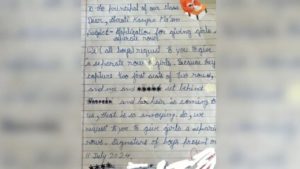 To do principal of our class
Dear, Bharti Kangra Ma'am
Subject - Application for giving girls
separate rows
We (all boys) request to you to give
a separate rows of girls. because they
capture two first seats of two rows,
and me and ***** sit behind
and her hair is coming to
us, that is so annoying. So, we
request to you to give girls a separate
rows. Signature of boys present on
11 July 2024